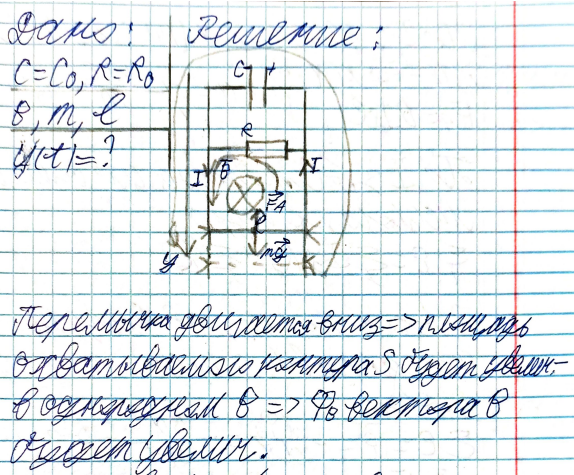 Дано: Решение:
C=C₀, R=R₀
B, m, l
y(t)=?
C +
R
I B I
F_A
y mg
Перемычка двигается вниз => площадь
охватываемого контура S будет увелич.
в однородном B => Ф_B вектора B
будет увелич.